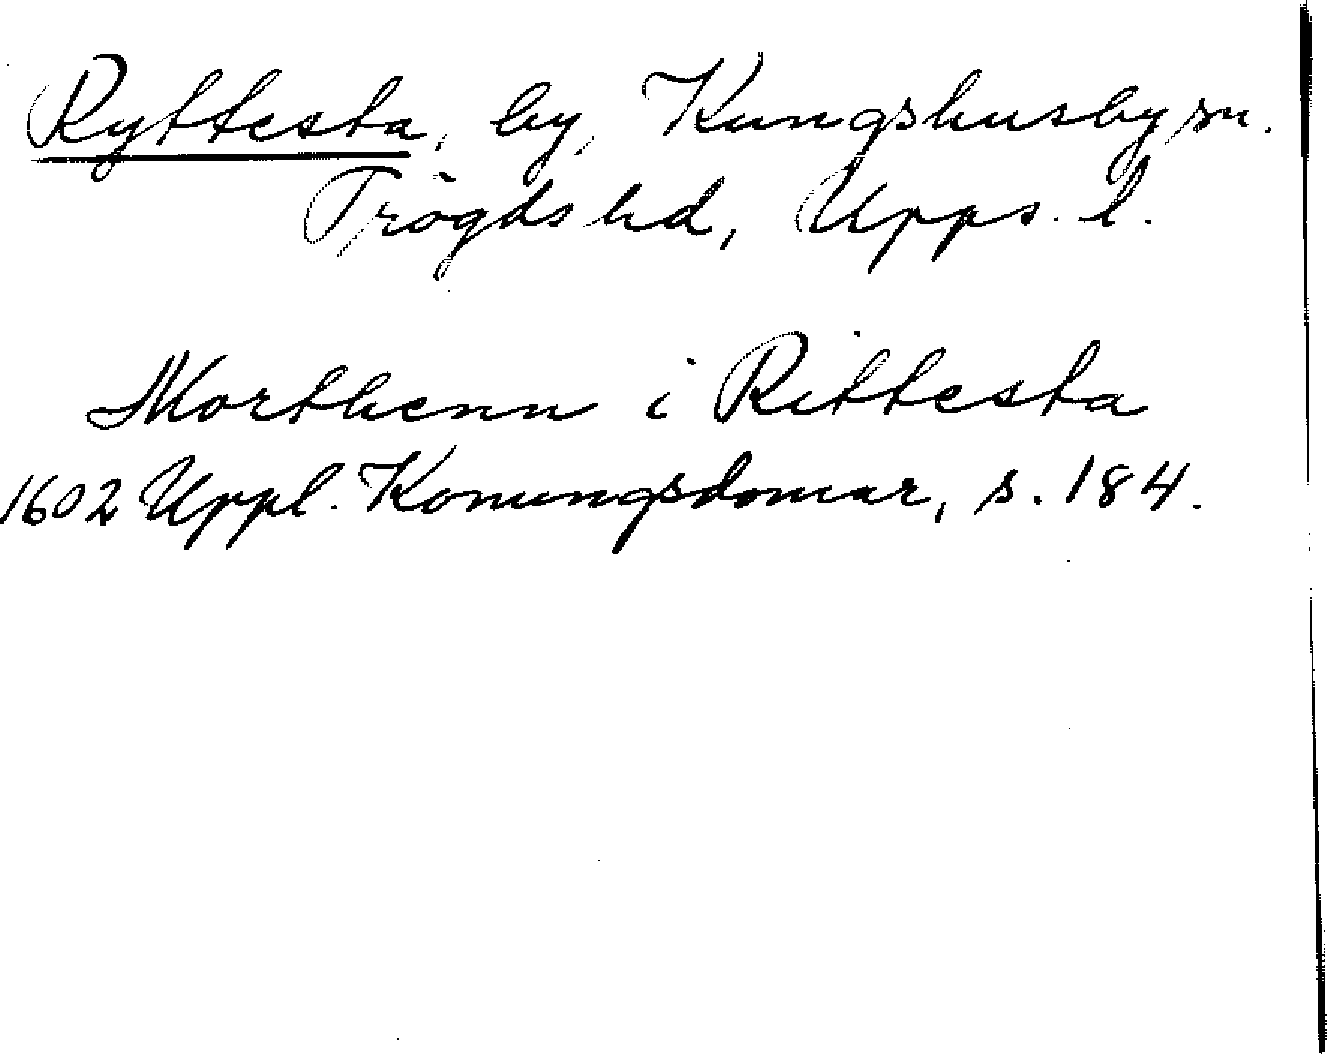 Ryttesta, by, Kungshusby sn.
Trögds hd, Upps. l.
Morthenn i Rittesta
1602 Uppl. Konungsdomar, s. 184.